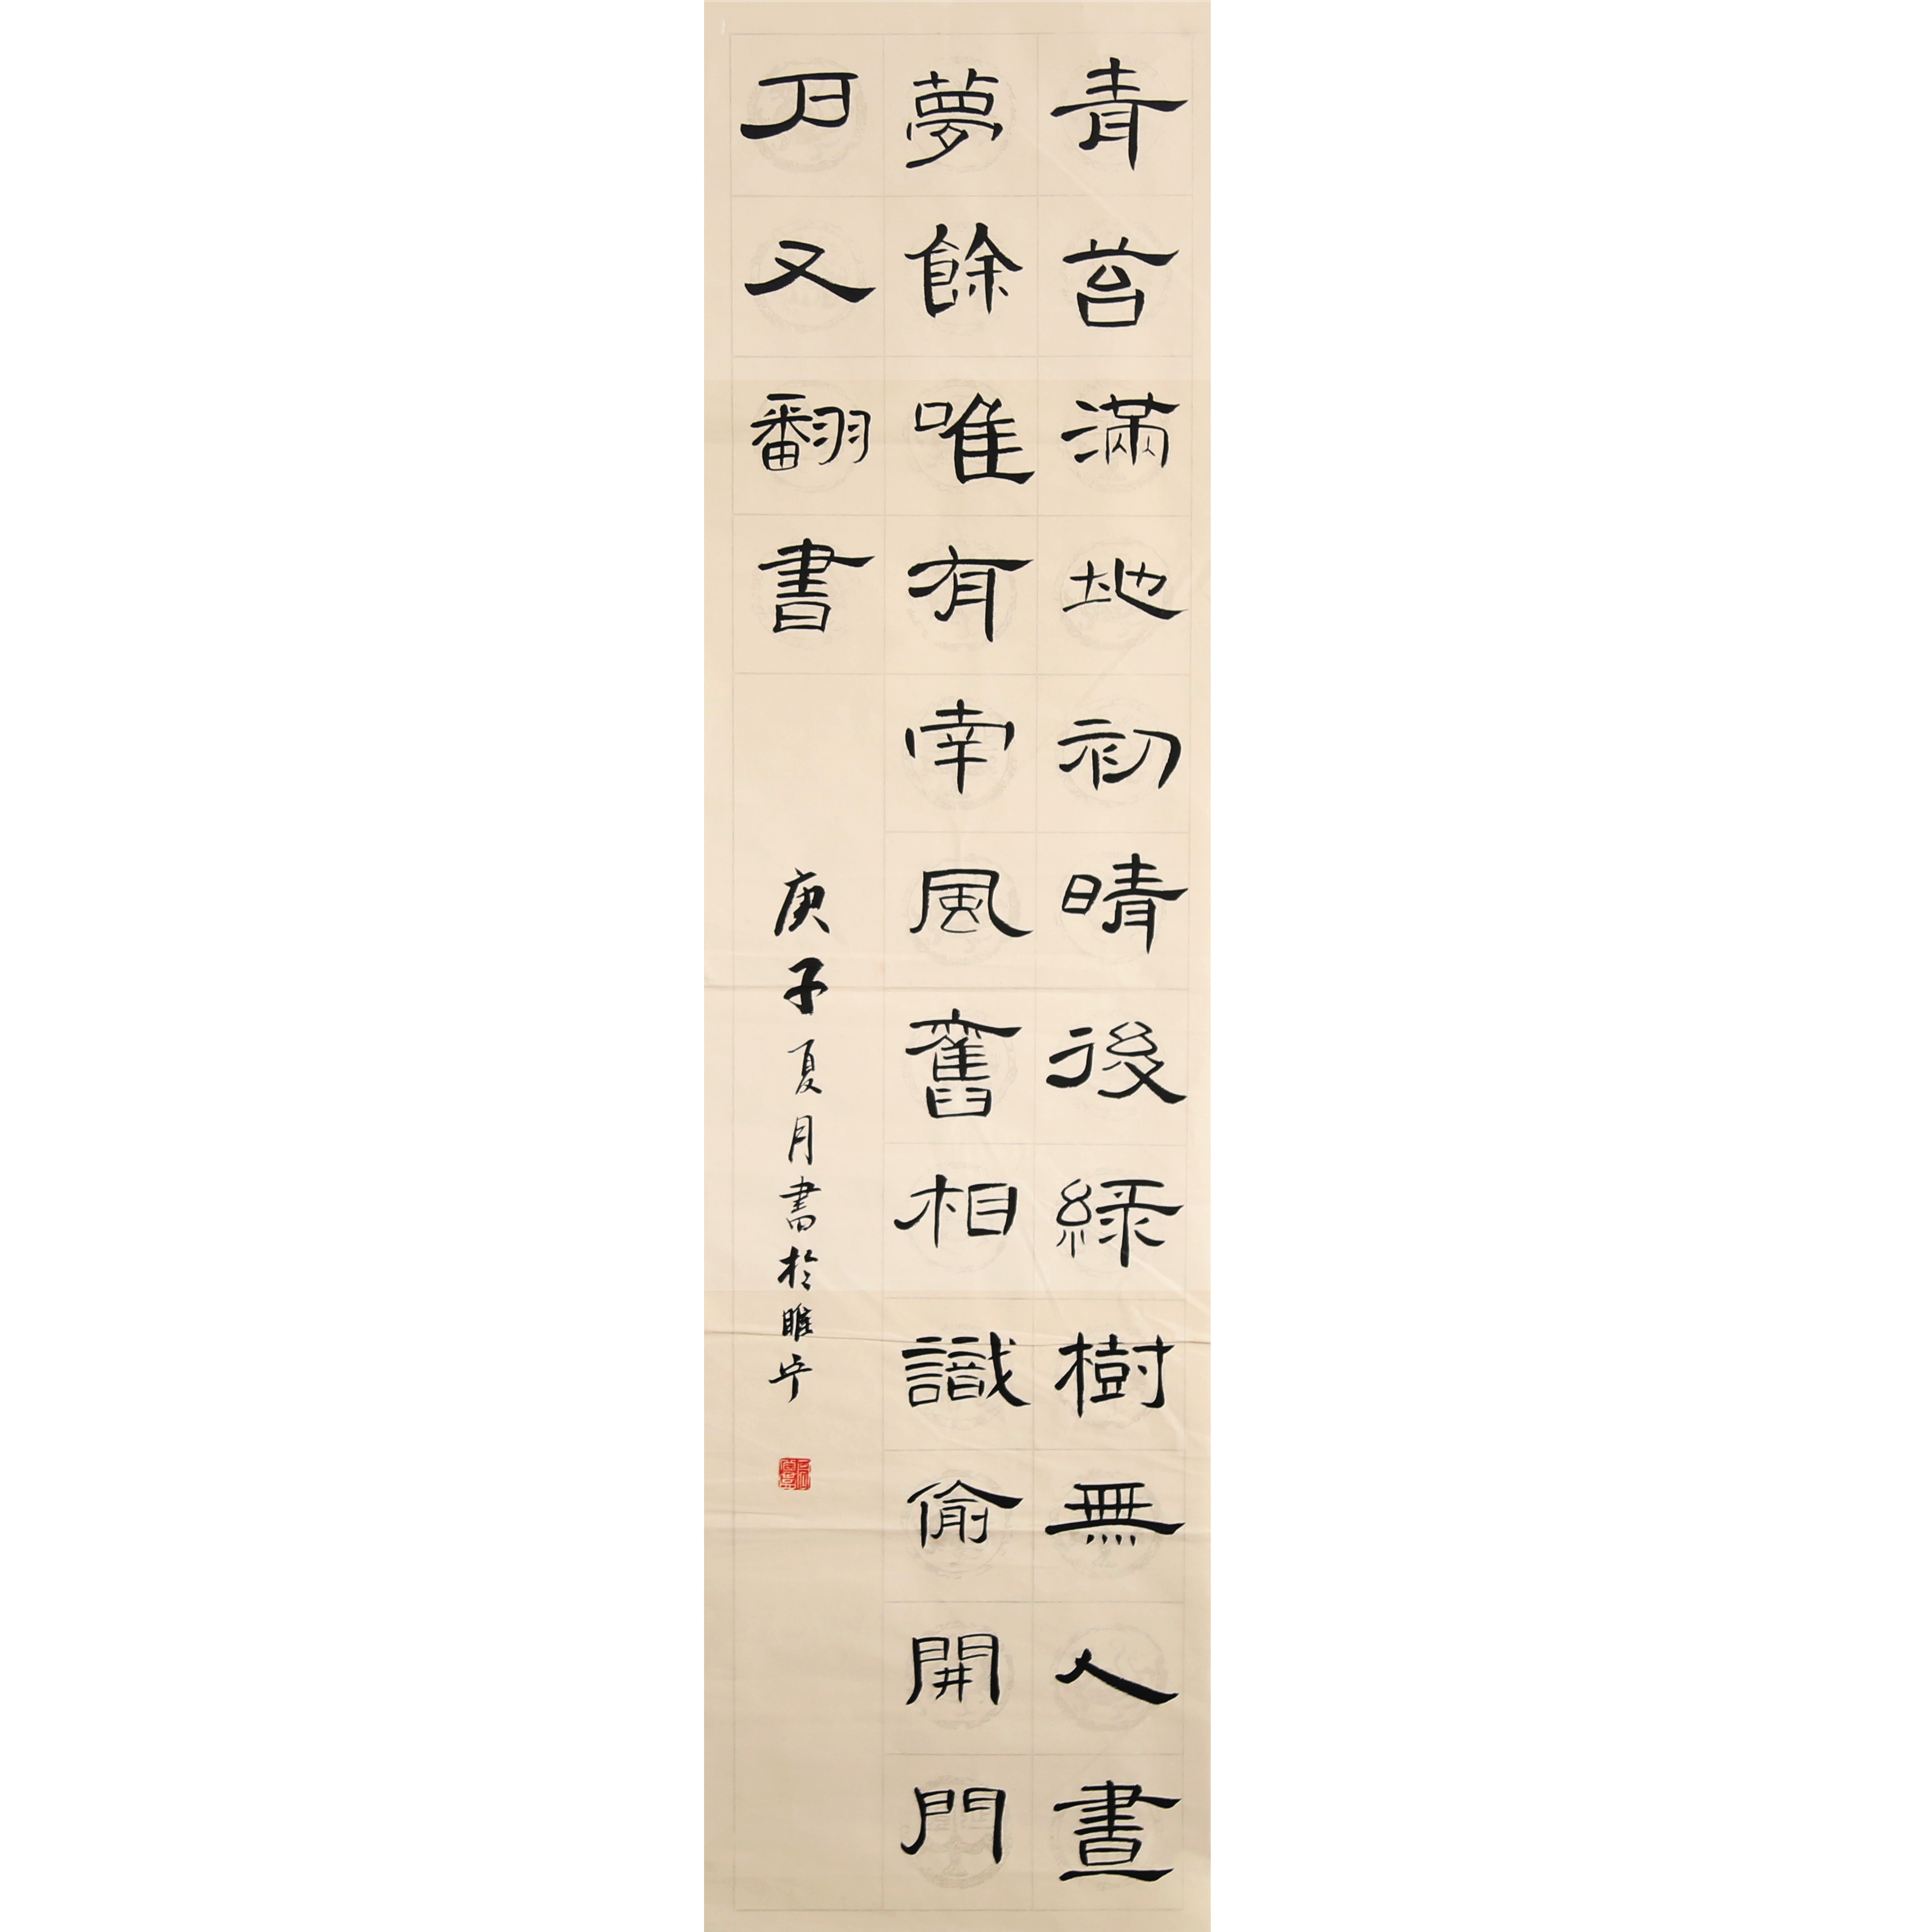 青苔滿地初晴後綠樹無人晝
夢餘唯有南風舊相識偷開門
戶又翻書
庚子夏月書於睢宁